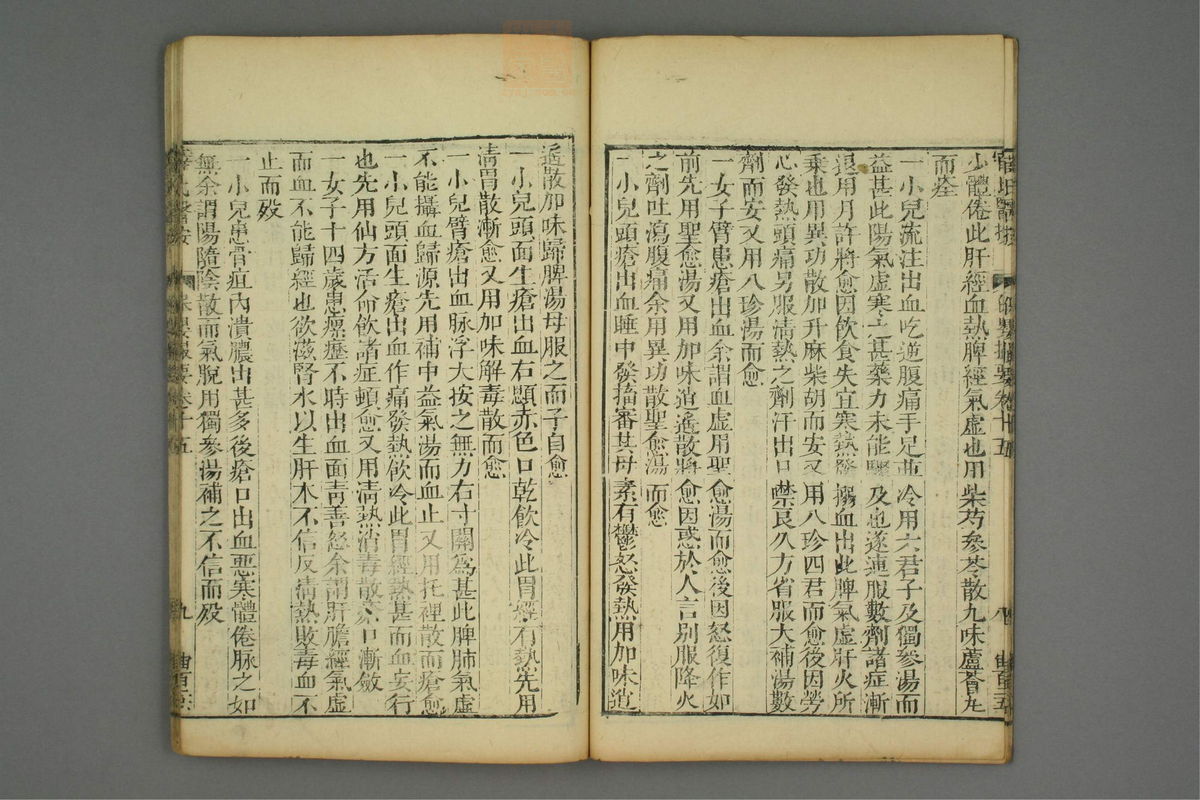 少體倦此肝經血熱脾經氣虛也用柴芍參苓散九味蘆薈丸
而痊
一小兒流注出血吃逆腹痛手足並冷用六君子及獨參湯而
益甚此陽氣虛寒之甚藥力未能驟及也遂連服數劑諸症漸
退用月許將愈因飲食失宜寒熱發搐血出此脾氣虛肝火所
乘也用異功散加升麻柴胡而安又用八珍四君而愈後因勞
心發熱頭痛另服清熱之劑汗出口禁良久方省服大補湯數
劑而安又用八珍湯而愈
一女子臂患瘡出血余謂血虛用聖愈湯而愈後因怒復作如
前先用聖愈湯又用加味逍遙散將愈因惑於人言別服降火
之劑吐瀉腹痛余用異功散聖愈湯而愈
一小兒頭瘡出血睡中發搐審其母素有鬱怒發熱用加味逍
遙散加味歸脾湯母服之而子自愈
一小兒頭面生瘡出血右顋赤色口乾飲冷此胃經有熱先用
清胃散漸愈又用加味解毒散而愈
一小兒臂瘡出血脉浮大按之無力右寸關為甚此脾肺氣虛
不能攝血歸源先用補中益氣湯而血止又用托裡散而瘡愈
一小兒頭面生瘡出血作痛發熱飲冷此胃經熱甚而血妄行
也先用仙方活命飲諸症頓愈又用清熱消毒散瘡口漸斂
一女子十四歲患瘰癧不時出血面青善怒余謂肝膽經氣虛
而血不能歸經也欲滋腎水以生肝木不信反清熱敗毒血不
止而歿
一小兒患骨疽內潰膿出甚多後瘡口出血惡寒體倦脉之如
無余謂陽隨陰散而氣脫用獨參湯補之不信而歿
薛氏醫按
保嬰撮要卷十五
九